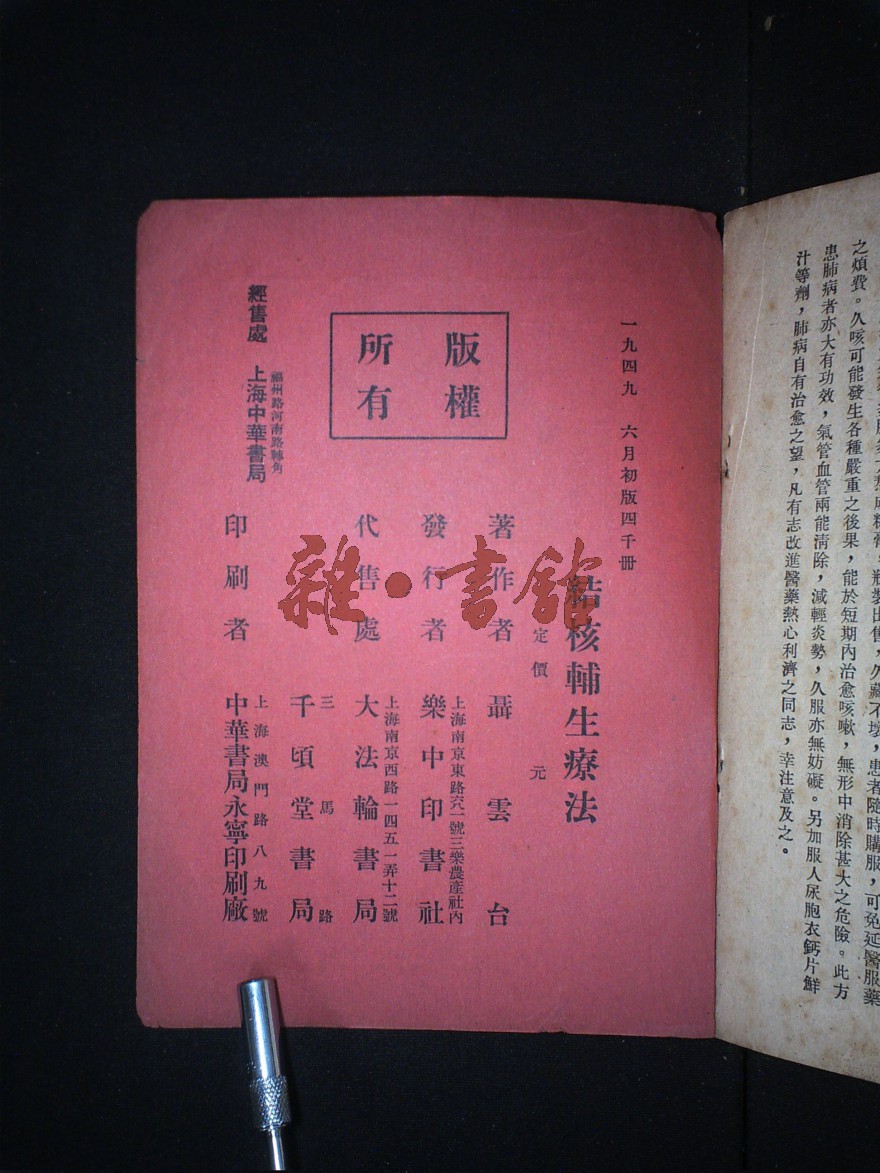 之煩費。久咳可能發生各種嚴重之後果，能於短期內治愈咳嗽，無形中消除甚大之危險。此方
患肺病者亦大有功效，氣管血管兩能清除，減輕炎勢，久服亦無妨礙。另加服人尿胞衣鈣片鮮
汁等劑，肺病自有治愈之望，凡有志改進醫藥熱心利濟之同志，幸注意及之。
一九四九 六月初版四千冊
結核輔生療法
定價 元
版權
所有
著作者 聶雲台
上海南京東路六一號三樂農產社內
發行者 樂中印書社
上海南京西路一四五一弄十二號
代售處 大法輪書局
三馬路
千頃堂書局
上海澳門路八九號
印刷者 中華書局永寧印刷廠
福州路河南路轉角
經售處 上海中華書局
雜·書館